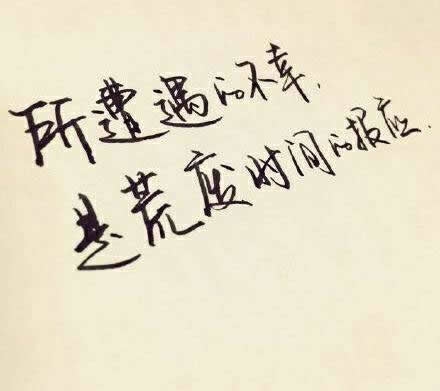 所遭遇的不幸,
是荒废时间的报应.